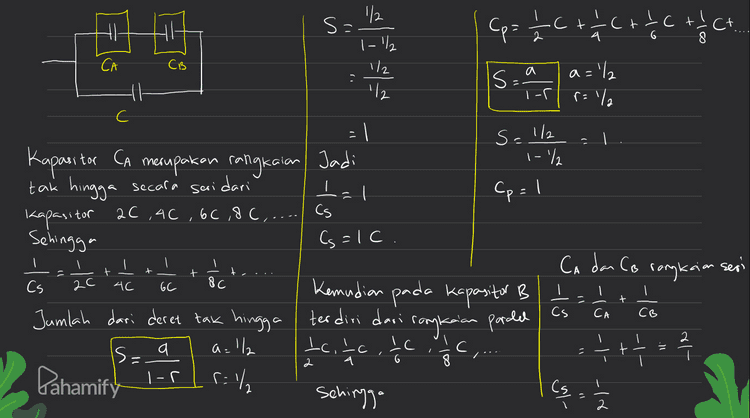 CA
CB
C
Kapasitor CA merupakan rangkaian
tak hingga secara seri dari
kapasitor 2C, 4C, 6C, 8C, .....
Sehingga
1/Cs = 1/2C + 1/4C + 1/6C + 1/8C + ....
Jumlah dari deret tak hingga
S = a/1-r
a = 1/2
r = 1/2
Pahamify
S = 1/2 / 1 - 1/2
= 1/2 / 1/2
= 1
Jadi
1/Cs = 1
Cs = 1 C.
Kemudian pada kapasitor B
terdiri dari rangkaian paralel
1/2 C, 1/4 C, 1/6 C, 1/8 C, ...
Sehingga
Cp = 1/2 C + 1/4 C + 1/6 C + 1/8 C + ....
S = a/1-r
a = 1/2
r = 1/2
S = 1/2 / 1 - 1/2 = 1.
Cp = 1
CA dan CB rangkaian seri
1/Cs = 1/CA + 1/CB
= 1/1 + 1/1 = 2/1
Cs/1 = 1/2